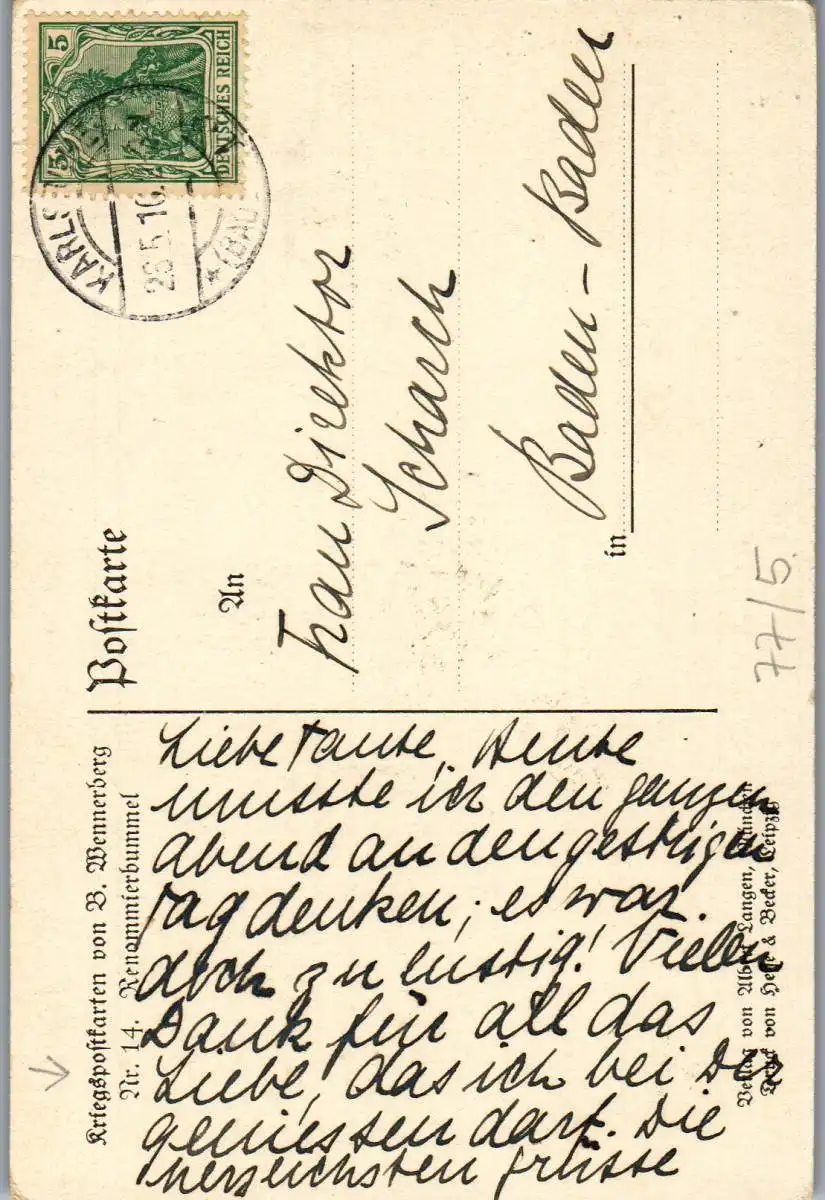 5 5
DEUTSCHES REICH
KARLSR
28.5.16.
* (BAD
Postkarte
An
Frau Direktor
Scharch
in Baden-Baden
77/5.
Kriegspostkarten von B. Wennerberg
Nr. 14. Renommierbummel
Liebe Tante, Heute
musste ich den ganzen
abend an den gestrigen
tag denken; es war
doch zu lustig! Vielen
Dank für all das
Liebe, das ich bei Dir
geniessen darf. Die
herzlichsten grüsse
Verlag von Albert Langen, München
Druck von Hesse & Becker, Leipzig